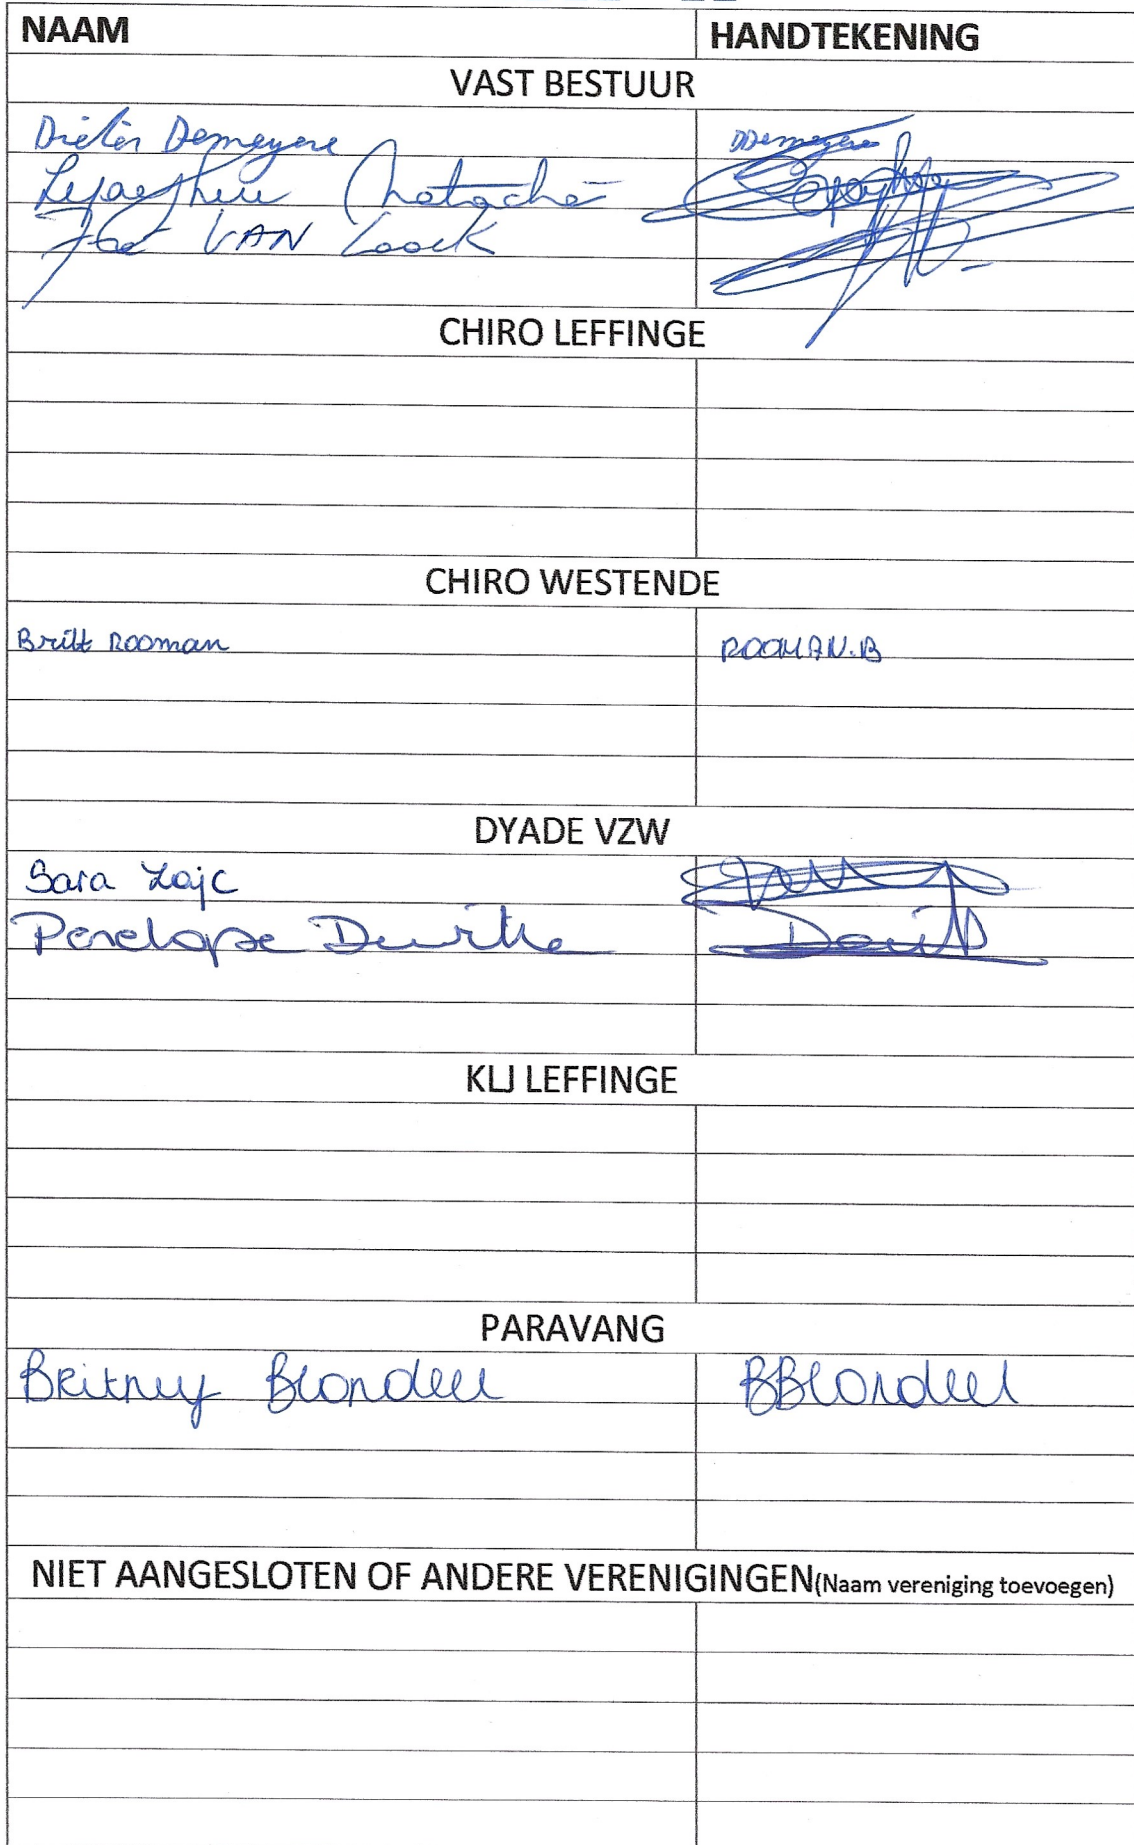 NAAM HANDTEKENING
VAST BESTUUR
Dieter Demeyere DDemeyere
Natacha
VAN Loock
CHIRO LEFFINGE
CHIRO WESTENDE
Britt Rooman ROOMAN.B
DYADE VZW
Sara Zajc
Penelope Dewitte Dewitt
KLJ LEFFINGE
PARAVANG
Britney Blondeel BBlondeel
NIET AANGESLOTEN OF ANDERE VERENIGINGEN(Naam vereniging toevoegen)